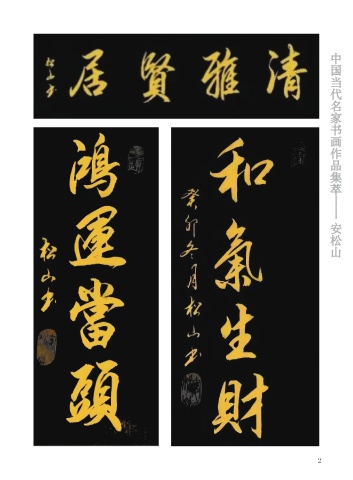 清雅賢居
松山书
和氣生財
癸卯冬月松山书
鴻運當頭
松山书
中国当代名家书画作品集萃——安松山
2